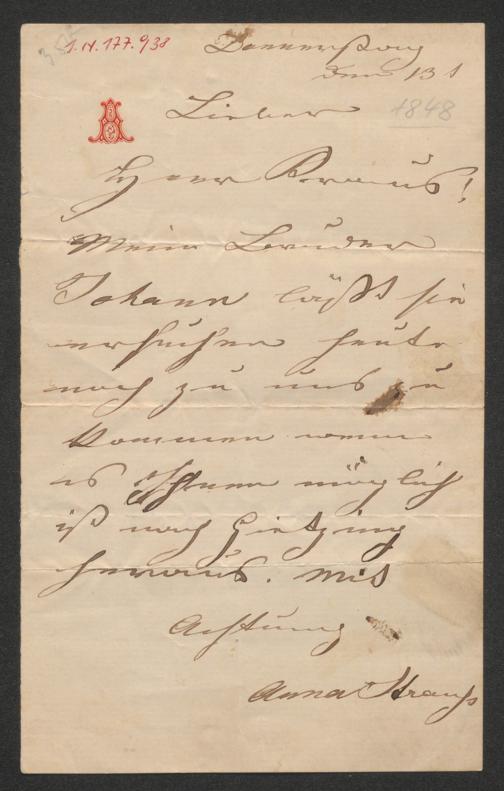 I.N. 177.938
Donnerstag
den 13t
1848
Lieber
Herr Kraus!
Mein Bruder
Johann läßt sie
ersuchen heute
noch zu uns zu
kommen wenn
es Ihnen möglich
ist nach Hietzing
heraus. Mit
Achtung
Anna Strauss